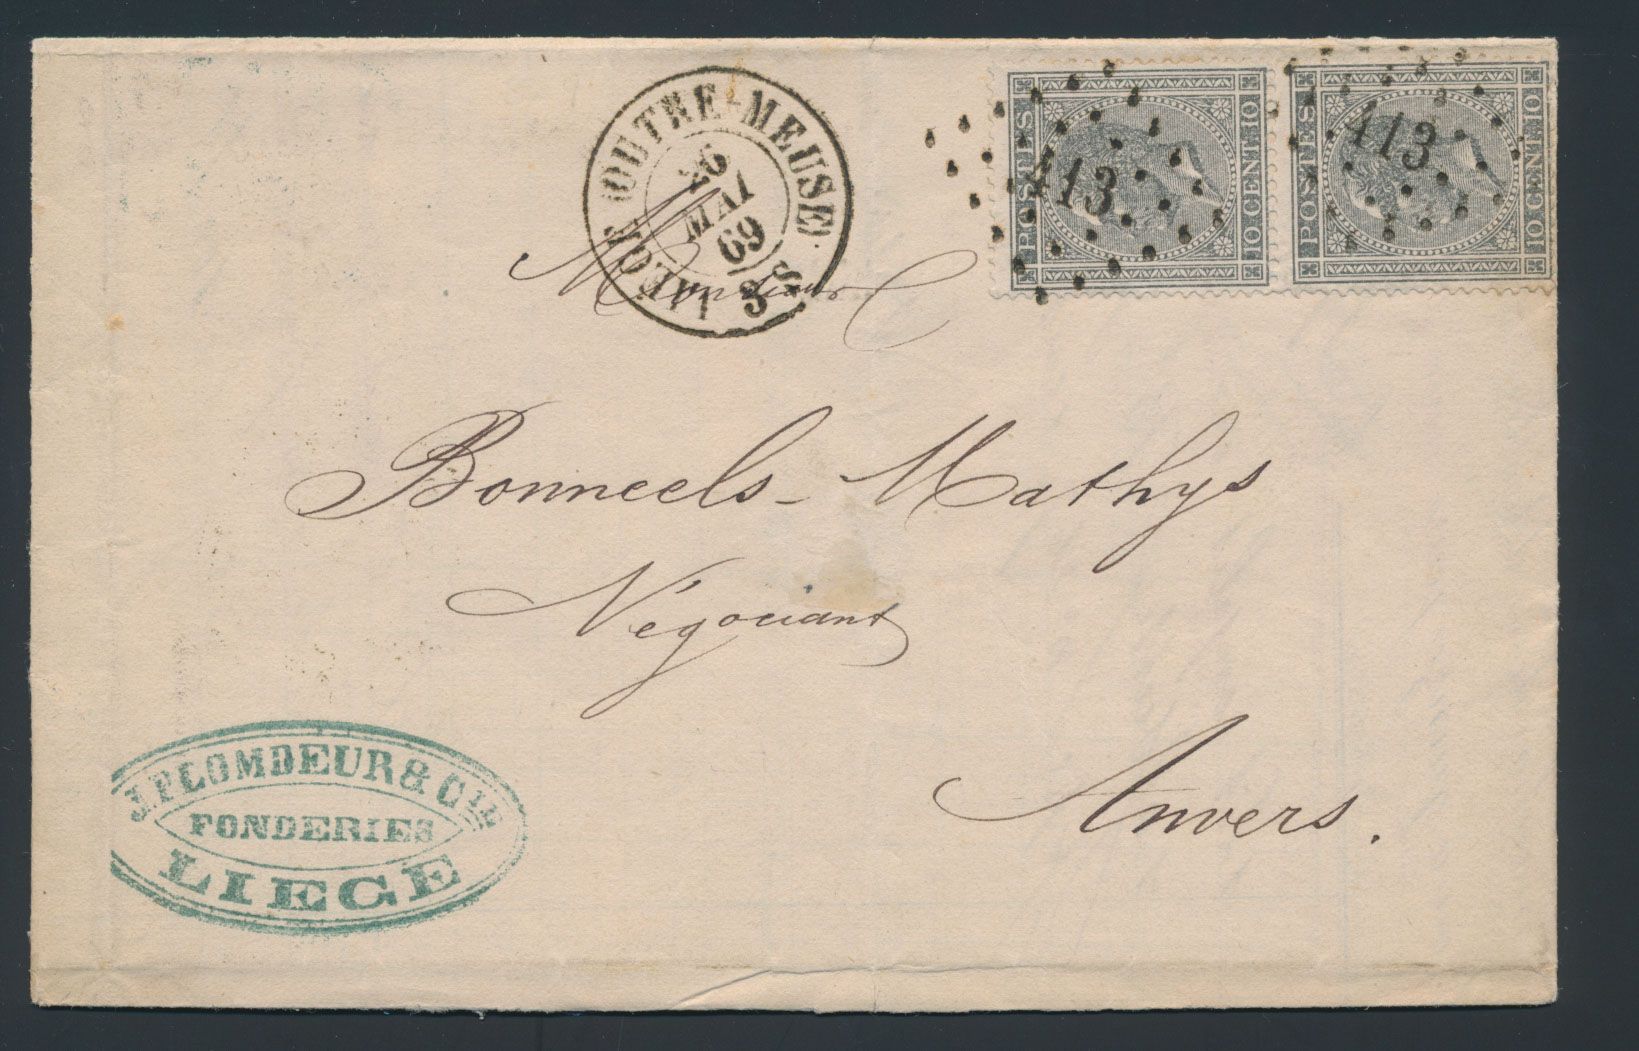 LIEGE (OUTRE-MEUSE)
26
MAI
69
3 S
POSTES
10 CENT. 10
413
POSTES
10 CENT. 10
413
Monsieur
Bonneels-Mathys
Négociant
Anvers.
J. P. COMDEUR & CIE
FONDERIES
LIEGE